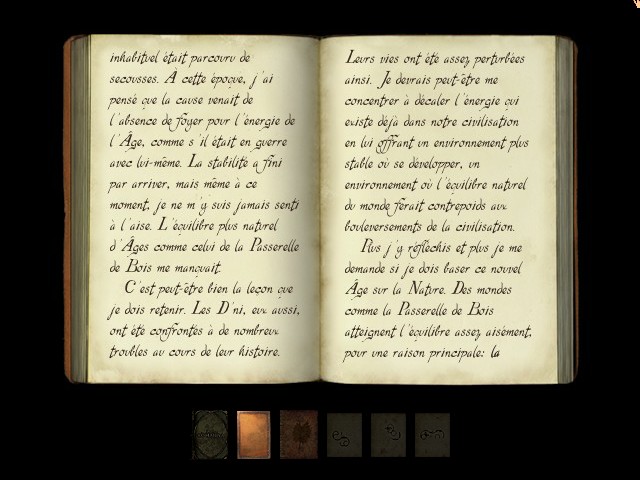 inhabituel était parcouru de
secousses. À cette époque, j'ai
pensé que la cause venait de
l'absence de foyer pour l'énergie de
l'Âge, comme s'il était en guerre
avec lui-même. La stabilité a fini
par arriver, mais même à ce
moment, je ne m'y suis jamais senti
à l'aise. L'équilibre plus naturel
d'Âges comme celui de la Passerelle
de Bois me manquait.
C'est peut-être bien la leçon que
je dois retenir. Les D'ni, eux aussi,
ont été confrontés à de nombreux
troubles au cours de leur histoire.
Leurs vies ont été assez perturbées
ainsi. Je devrais peut-être me
concentrer à décaler l'énergie qui
existe déjà dans notre civilisation
en lui offrant un environnement plus
stable où se développer, un
environnement où l'équilibre naturel
du monde ferait contrepoids aux
bouleversements de la civilisation.
Plus j'y réfléchis et plus je me
demande si je dois baser ce nouvel
Âge sur la Nature. Des mondes
comme la Passerelle de Bois
atteignent l'équilibre assez aisément,
pour une raison principale: la